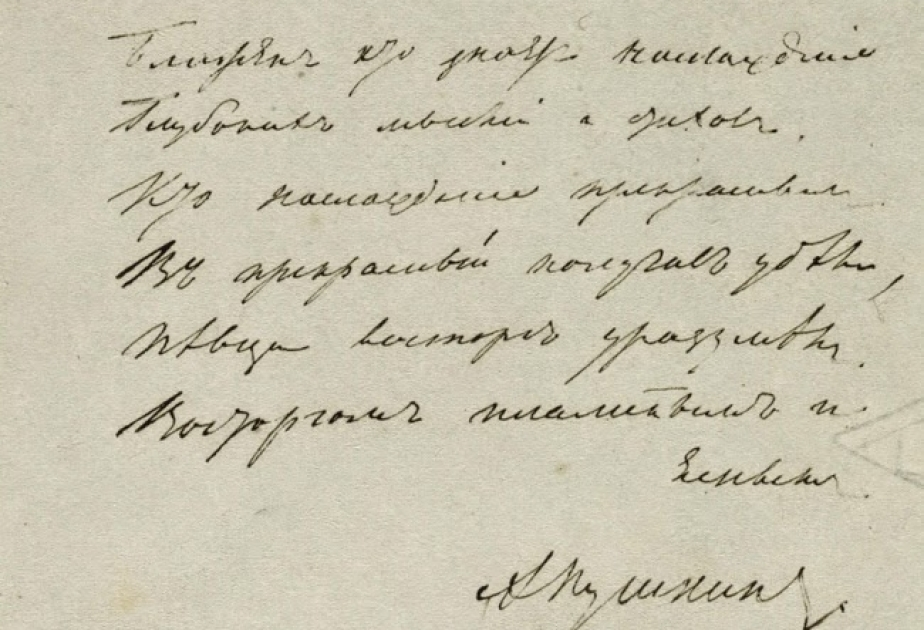 Блаженъ кто знаетъ наслажденіе
Глубокихъ мыслей и стиховъ,
Кто наслажденіе прекраснымъ
Въ прекрасный получилъ удѣлъ,
Пѣвца восторгъ уразумѣлъ
Восторгомъ пламеннымъ и
Яснымъ.
А Пушкинъ.